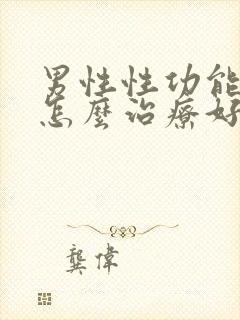 男性性功能
怎麼治療好
龔偉